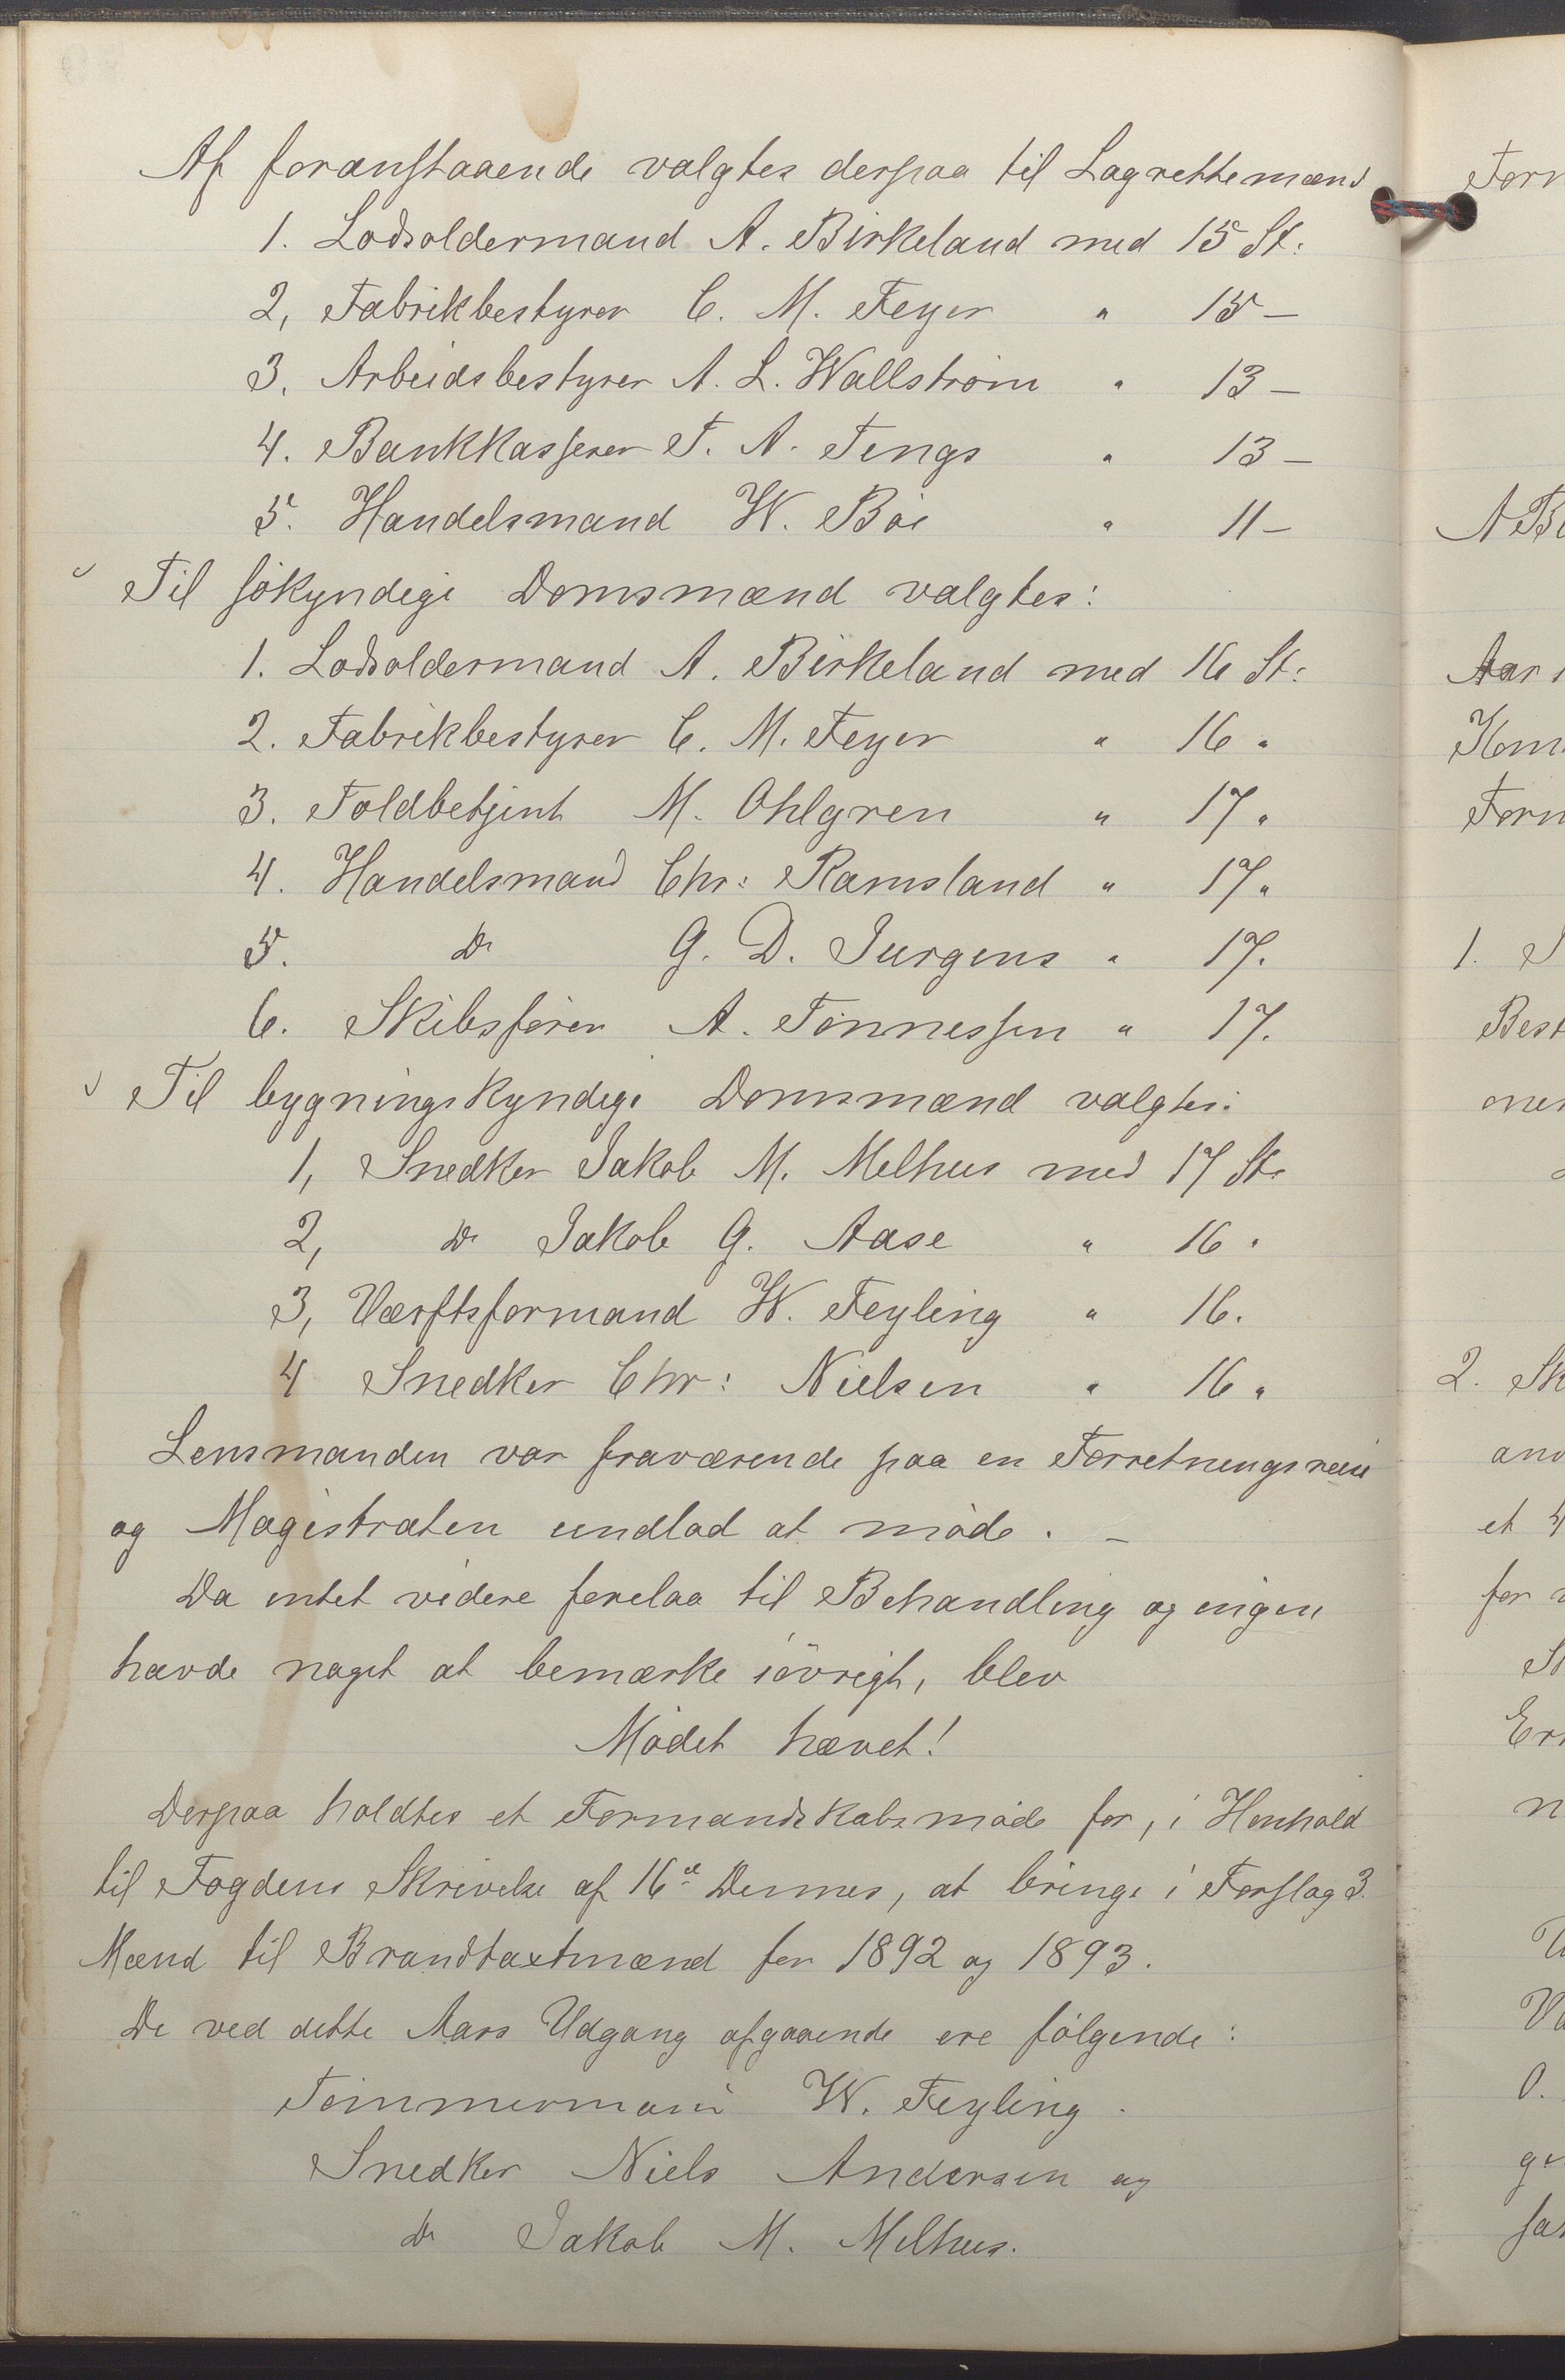 Af foranstaaende valgtes derpaa til Lagrettemænd
1. Lodsoldermand A. Birkeland med 15 St:
2, Fabrikbestyrer C. M. Feyer " 15 –
3. Arbeidsbestyrer A. L. Wallstrøm " 13 –
4. Bankkasserer T. A. Tengs " 13 –
5. Handelsmand W. Bøe " 11 –
Til søkyndige Domsmænd valgtes:
1. Lodsoldermand A. Birkeland med 16 St:
2. Fabrikbestyrer C. M. Feyer " 16 "
3. Toldbetjent M. Ohlgren " 17 "
4. Handelsmand Chr: Ramsland " 17 "
5. Do G. D. Jurgens " 17.
6. Skibsfører A. Tønnessen " 17.
Til bygningskyndige Domsmænd valgtes:
1, Snedker Jakob M. Melhus med 17 St:
2, Do Jakob G. Aase " 16 "
3, Værftsformand W. Feyling " 16.
4 Snedker Chr: Nielsen " 16 "
Lensmanden var fraværende paa en Forretningsreise
og Magistraten undlod at møde. –
Da intet videre forelaa til Behandling og ingen
havde noget at bemærke iøvrigt, blev
Mødet hævet!
Derpaa holdtes et Formandskabsmøde for, i Henhold
til Fogdens Skrivelse af 16de Dennes, at bringe i Forslag 3
Mænd til Brandtaxtmænd for 1892 og 1893.
De ved dette Aars Udgang afgaaende ere følgende:
Tømmermand W. Feyling.
Snedker Niels Andersen og
Do Jakob M. Melhus.